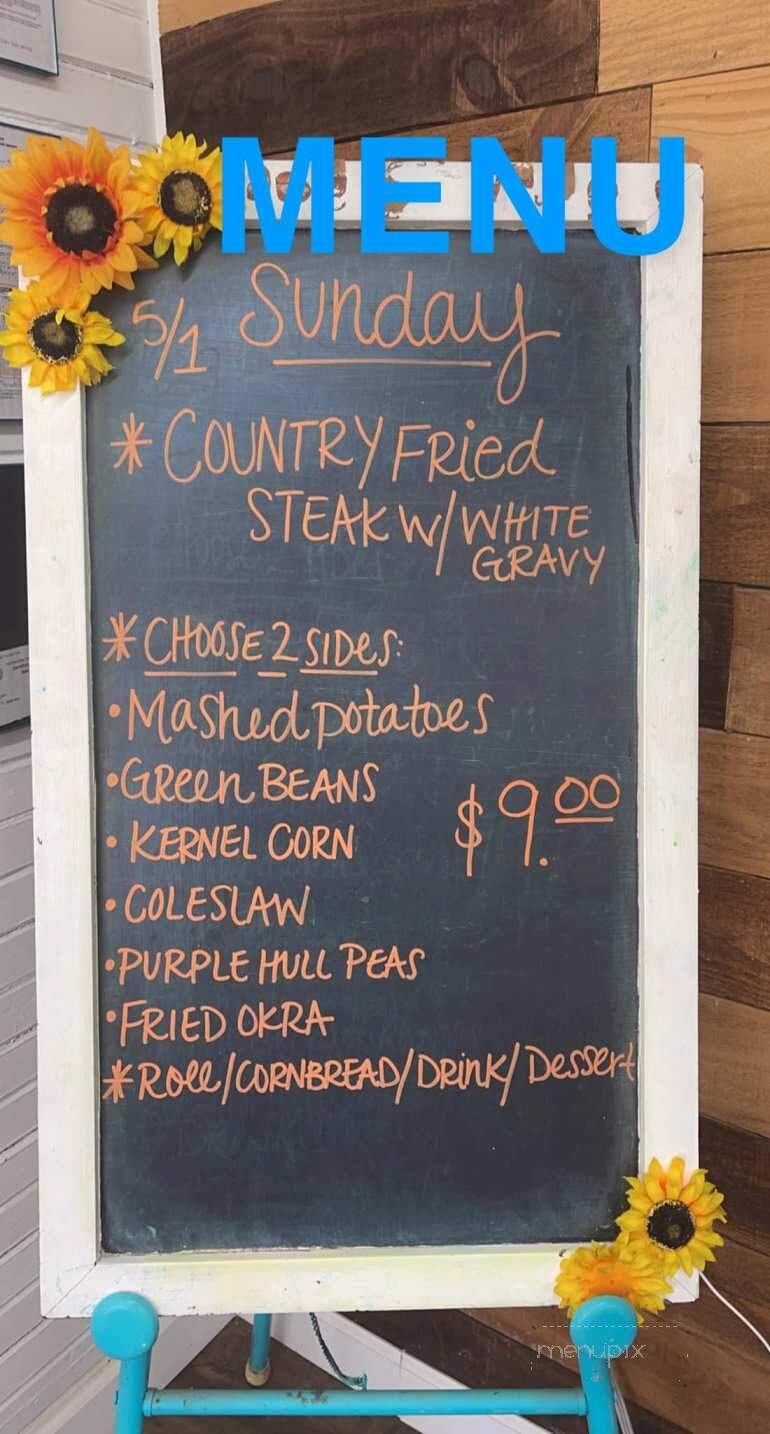 MENU
5/1 Sunday
* COUNTRY FRied
STEAK W/ WHITE
GRAVY
* CHOOSE 2 SIDES:
• MaSHed potatoes
• GReen BEANS
• KERNEL CORN
$9.00
• COLESLAW
• PURPLE HULL PEAS
• FRIED OKRA
* Roll/CORNBREAD/DRINK/Dessert
menupix